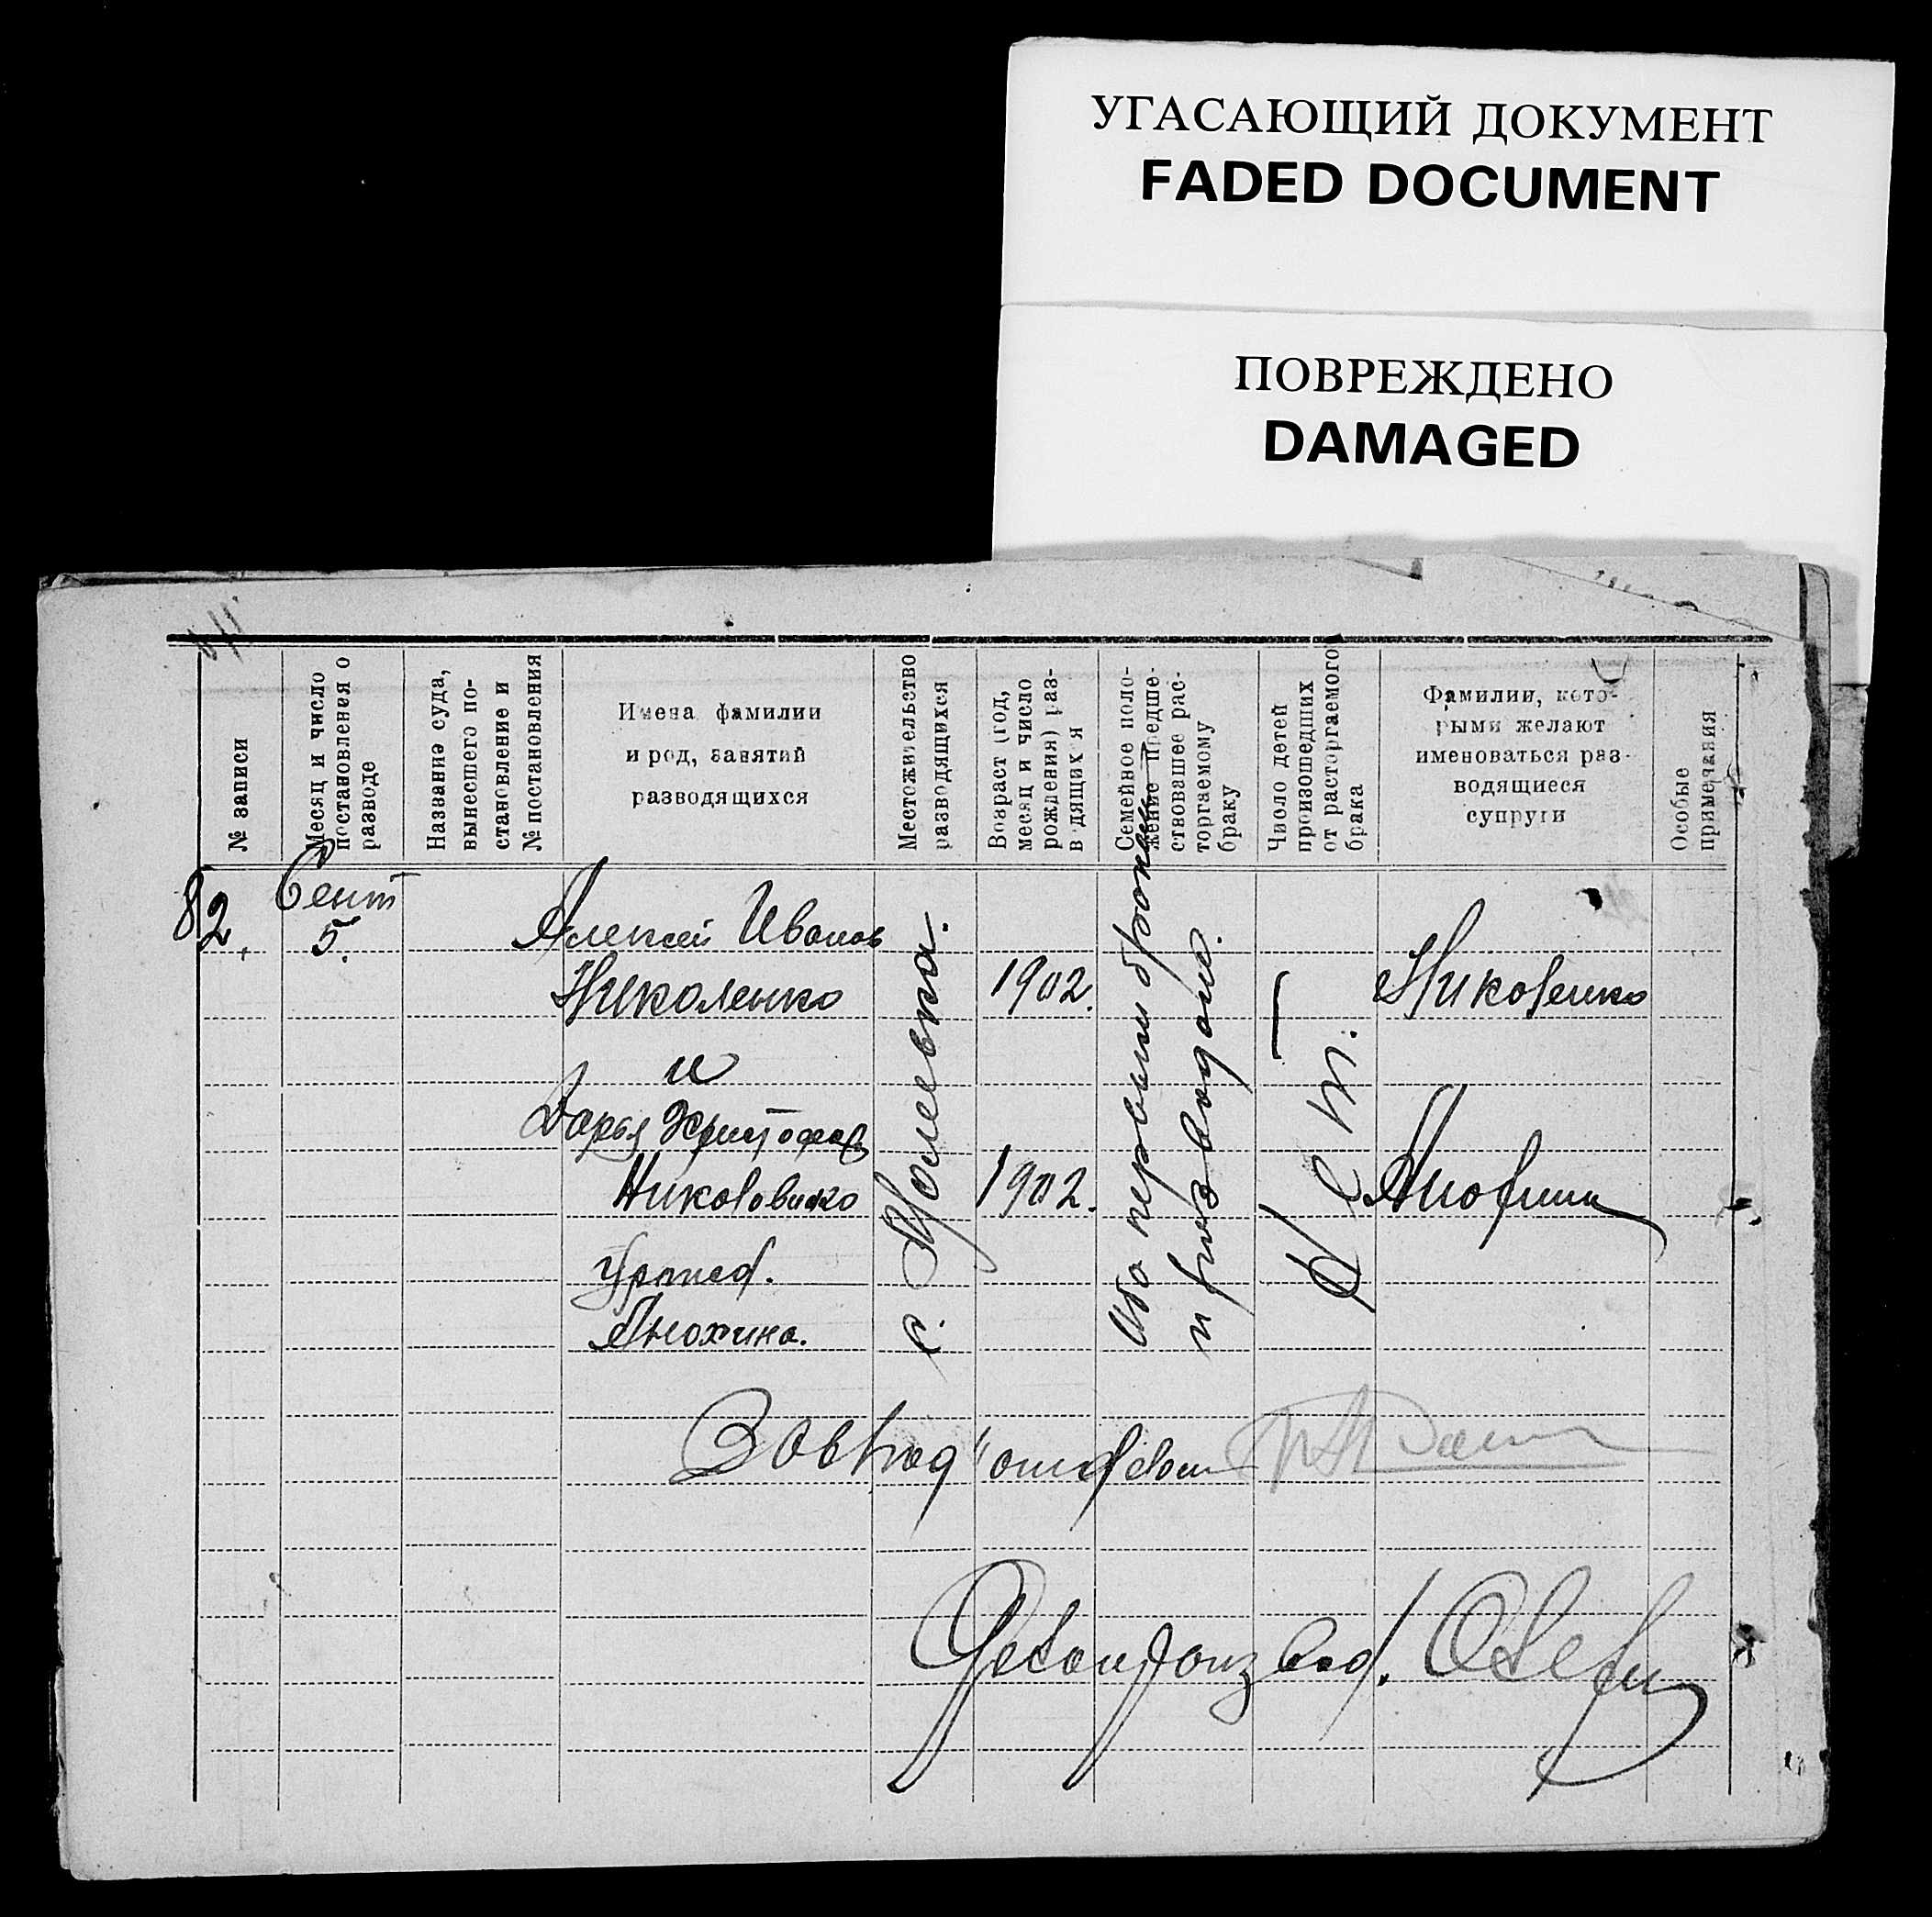 УГАСАЮЩИЙ ДОКУМЕНТ
FADED DOCUMENT
ПОВРЕЖДЕНО
DAMAGED
№ записи
Месяц и число
постановления о
разводе
Название суда,
вынесшего по-
становление и
№ постановления
Имена фамилии
и род, занятий
разводящихся
Местожительство
разводящихся
Возраст (год,
месяц и число
рождения) раз-
водящихся
Семейное поло-
жение предше-
ствовавшее рас-
торгаемому
браку
Число детей
происшедших
от расторгаемого
брака
Фамилии, кото-
рыми желают
именоваться раз-
водящиеся
супруги
Особые
примечания
82.
Сент
5.
Алексей Иванов
Николенко
и
Дарья Христофор
Анохина.
с.
1902.
1902.
Оба первым браком
и разводом.
Нет.
Николенко
Анохина
Завпод отделом